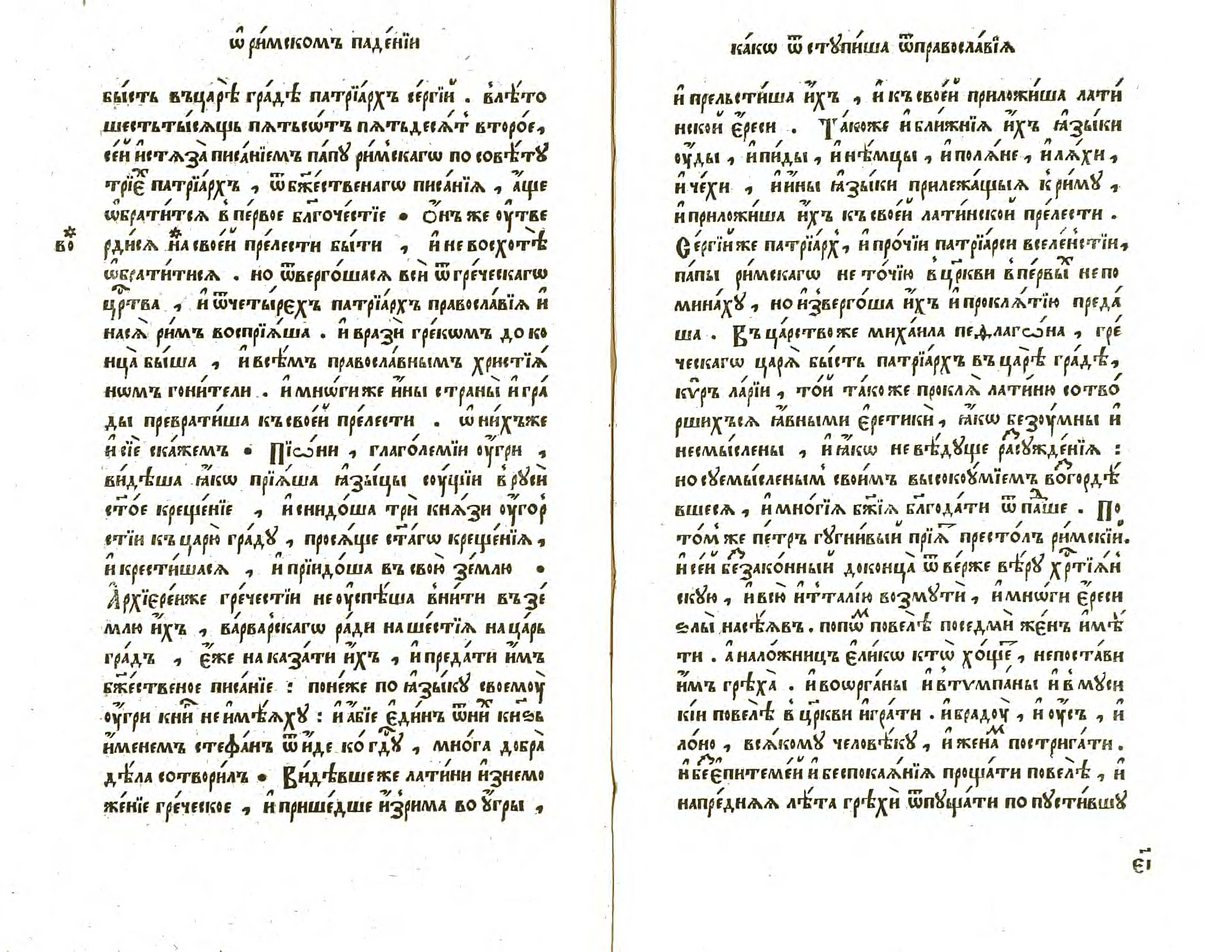 ѽ ри́мскомъ паде́нїи
бы́сть въцарѣ̀ гра́дѣ патрїа́рхъ се́ргїй . влѣ́то
шестьты́сѧщь пѧтьсѡ́тъ пѧтьдесѧ́т второ́е,
се́й и҆стѧза̀ писа́нїемъ па́пꙋ ри́мскагѡ по совѣ́тꙋ
трїе҆́х патрїа́рхъ , ѿ бж҃е́ственагѡ писа́нїѧ , а҆́ще
ѡ҆брати́тсѧ в пе́рвое бл҃гоче́стїе . Ѻ҆́нъ же ᲂу҆тве
во
рди́сѧ на свое́й пре́лести бы́ти , и҆ не восхотѣ̀
ѡ҆брати́тисѧ . но ѿверго́шасѧ всѝ ѿ гре́ческагѡ
црⷭ҇тва , и҆ ѿ четы́рєхъ патрїа́рхъ правосла́вїѧ и҆
насѧ̀ ри́мъ воспрїѧ́ша . и҆ вразѝ гре́кѡмъ до ко
нца̀ бы́ша , и҆ всѣ́мъ правосла́внымъ христїѧ́
нѡмъ гони́тели . и҆ мнѡ́ги же и҆́ны страны̀ и҆ гра́
ды преврати́ша къ свое́й пре́лести . ѡ҆ ни́хъ же
и҆ сїѐ ска́жемъ . Пїѡ́ни , глаго́лемїи ᲂу҆́гри ,
ви́дѣша ꙗ҆́кѡ прїѧ́ша ꙗ҆зы́цы соу́щїи в рꙋсѝ
ст҃о́е креще́нїе , и҆ снидо́ша трѝ кнѧ́зи ᲂу҆го́р
стїи къ царю̀ гра́дꙋ , просѧ́ще ст҃а́гѡ креще́нїѧ ,
и҆ крести́шасѧ , и҆ прїидо́ша въ свою̀ зе́млю .
А҆рхїє҆ре́и же гре́чєстїи не ᲂу҆спѣ́ша вни́ти въ зе́
млю и҆́хъ , ва́рварскагѡ ра́ди наше́стїѧ на ца́рь
гра́дъ , є҆́же наказа́ти и҆́хъ , и҆ преда́ти и҆́мъ
бж҃е́ственое писа́нїе : поне́же по ꙗ҆зы́кꙋ своемоу̀
ᲂу҆́гри кни́г не и҆мѣ́ѧхꙋ : и҆ а҆́бїе є҆ди́нъ ѿ ни́х кнѧ́ѕь
и҆́менемъ стефа́нъ ѿи́де ко гдⷭ҇ꙋ , мно́га добра̀
дѣ́ла сотвори́лъ . Ви́дѣвше же лати́ни и҆знемо
же́нїе гре́ческое , и҆ прише́дше и҆зри́ма во ᲂу҆́гры ,
ка́кѡ ѿстꙋпи́ша ѿправосла́вїѧ
и҆ прельсти́ша и҆́хъ , и҆ къ свое́й приложи́ша лати́
нской є҆́реси . Та́коже и҆ бли́жнїѧ и҆́хъ ꙗ҆зы́ки
ᲂу҆́ды , и҆ пи́ды , и҆ нѣ́мцы , и҆ полѧ́не , и҆ лѧ́хи ,
и҆ че́хи , и҆ и҆́ны ꙗ҆зы́ки прилежа́щыѧ к ри́мꙋ ,
и҆ приложи́ша и҆́хъ къ свое́й лати́нской пре́лести .
Се́ргїй же патрїа́рх , и҆ про́чїи патрїа́рси вселе́нстїи ,
па́пы ри́мскагѡ не то́чїю в цр҃кви в пе́рвых не по
мина́хꙋ , но и҆зверго́ша и҆́хъ и҆ проклѧ́тїю преда́
ша . Въ ца́рство же михаи́ла пефлагѡ́на , гре́
ческагѡ царѧ̀ бы́сть патрїа́рхъ въ царѣ̀ гра́дѣ ,
кѵ̑ръ ла́рїи , то́й та́коже проклѧ̀ лати́ню сотво́
ршихъсѧ ꙗ҆́вными є҆ретикѝ , ꙗ҆́кѡ безоу́мны и҆
несмы́слены , и҆ ꙗ҆́кѡ не вѣ́дꙋще разсꙋжде́нїѧ :
но сꙋемы́сленым свои́мъ высокоꙋ́мїемъ возгордѣ́
вшесѧ , и҆ мно́гїѧ бж҃їѧ бл҃года́ти ѿпа́дше . По
то́м же пе́тръ гꙋгни́вый прїѧ́т престо́лъ ри́мскїй .
и҆ се́й беззако́нный доконца̀ ѿве́рже вѣ́рꙋ хрⷭ҇тїѧ́н
скꙋю , и҆ всю̀ и҆тта́лїю возмꙋтѝ , и҆ мнѡ́ги є҆́реси
ѕлы̀ насѣ́ѧвъ . попѡ́м повелѣ̀ по се́дмѝ же́нъ и҆мѣ́
ти . а҆ нало́жницъ є҆ли́кѡ ктѡ̀ хо́щет , не поста́ви
и҆́мъ грѣха̀ . и҆ во ѡ҆рга́ны и҆ в тѵмпа́ны и҆ в мꙋси
кі́и повелѣ̀ в цр҃кви и҆гра́ти . и҆ брадоу̀ , и҆ ᲂу҆́съ , и҆
ло́но , всѧ́комꙋ человѣ́кꙋ , и҆ жена́м пострига́ти .
и҆ без є҆питеме́й и҆ беспокаѧ́нїѧ проща́ти повелѣ̀ , и҆
напре́днѧѧ лѣ́та грѣхѝ ѿпꙋща́ти по пꙋсти́вшꙋ
є҃і